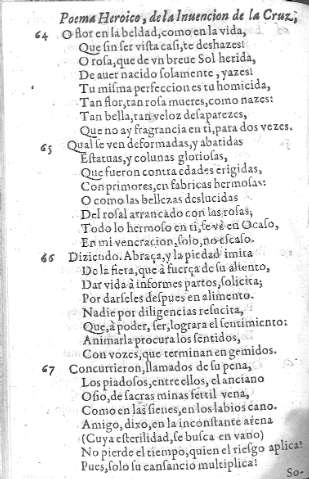 Poema Heroico, de la Inuencion de la Cruz,
64 O flor en la beldad, como en la vida,
Que sin ser vista casi, te deshazes!
O rosa, que de vn breue Sol herida,
De auer nacido solamente, yazes!
Tu misma perfeccion es tu homicida,
Tan flor, tan rosa mueres, como nazes!
Tan bella, tan veloz desaparezes,
Que no ay fragrancia en ti, para dos vezes.
65 Qual se ven deformadas, y abatidas
Estatuas, y colunas gloriosas,
Que fueron contra edades erigidas,
Con primores, en fabricas hermosas:
O como las bellezas deslucidas
Del rosal arrancado con las rosas;
Todo lo hermoso en ti, se vè en Ocaso,
En mi veneracion, solo, no escaso.
66 Diziendo. Abraça, y la piedad imita
De la fiera, que à fuerça de su aliento,
Dar vida à informes partos, solicita;
Por darseles despues en alimento.
Nadie por diligencias resucita,
Que, à poder, ser, lograra el sentimiento:
Animarla procura los sentidos,
Con vozes, que terminan en gemidos.
67 Concurrieron, llamados de su pena,
Los piadosos, entre ellos, el anciano
Osio, de sacras minas fertil vena,
Como en las sienes, en los labios cano.
Amigo, dixo, en la inconstante arena
(Cuya esterilidad, se busca en vano)
No pierde el tiempo, quien el riesgo aplica!
Pues, solo su cansancio multiplica!
So-